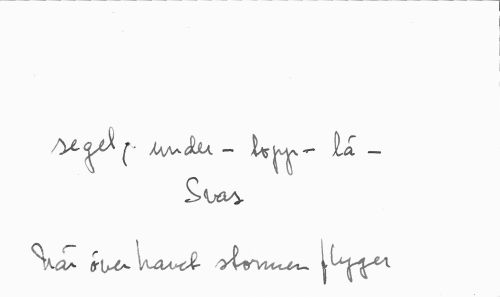 segel; under - topp - lå -
Svas
När över havet stormen flyger